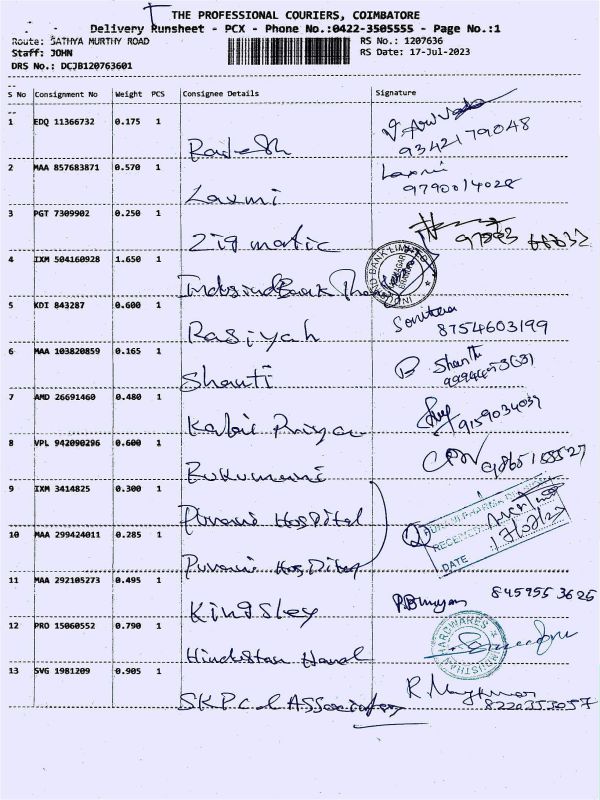 THE PROFESSIONAL COURIERS, COIMBATORE
Delivery Runsheet - PCX - Phone No.:0422-3505555 - Page No.:1
Route: SATHYA MURTHY ROAD
RS No.: 1207636
Staff: JOHN
RS Date: 17-Jul-2023
DRS No.: DCJB120763601
S No Consignment No Weight PCS Consignee Details Signature
1 EDQ 11366732 0.175 1 Rajesh
9342179048
2 MAA 857683871 0.570 1 Laxmi Laxmi
9790014028
3 PGT 7309902 0.250 1 Zigmatic
4 IXM 504160928 1.650 1 Indusind Bank
5 KDI 843287 0.600 1 Rasiyah
8754603199
6 MAA 103820859 0.165 1 Shanti Shanthi
7 AMD 26691460 0.480 1 Kabil Priya
9159034039
8 VPL 942090296 0.600 1 Rukumani
9 IXM 3414825 0.300 1 Purani Hospital
10 MAA 299424011 0.285 1 Purani Hospital
RECEIVED
DATE 17/07/23
11 MAA 292105273 0.495 1 Kingsley
8459553625
12 PRO 15060552 0.790 1 Hindustan
HARDWARES
13 SVG 1981209 0.905 1 SKPC and Associates
8220353057